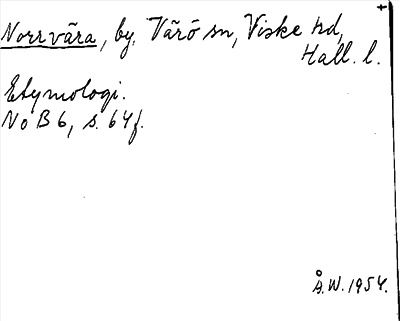 Norrvära, by, Värö sn, Viske hd,
Hall. l.
Etymologi.
NoB 6, s. 64f.
Å.W. 1954.